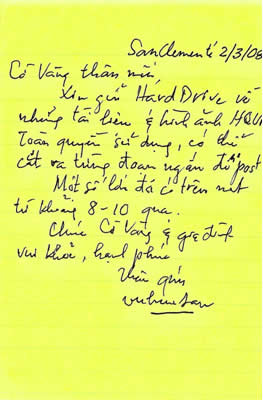 SanClemente 2/3/08
Cô Vàng thân mến,
Xin gửi Hard Drive về
những tài liệu & hình ảnh HQVN
Toàn quyền sử dụng, có thể
cắt ra từng đoạn ngắn để post
Một số lớn đã có trên net
từ khoảng 8-10 qua.
Chúc Cô Vàng & gia đình
vui khỏe, hạnh phúc
Thân quý
vuhuusan